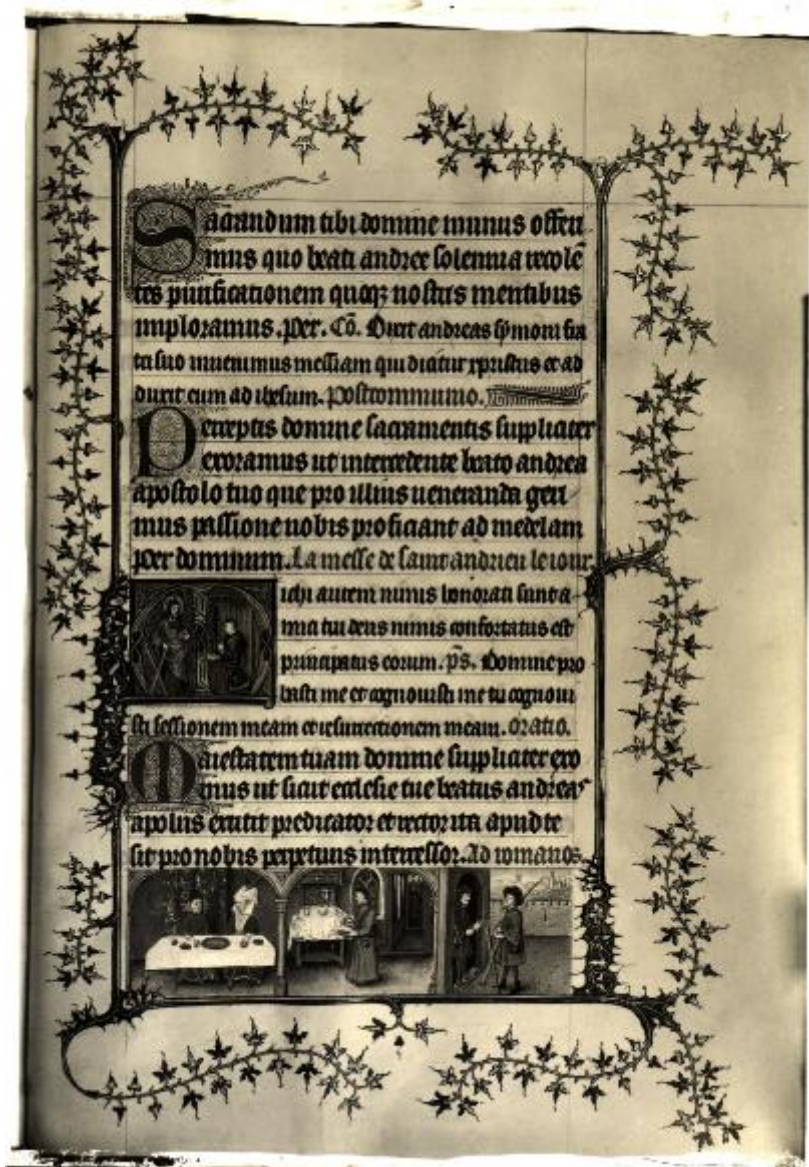 Sacrandum tibi domine munus offeri
mus quo beati andree solennia recolē
tes purificationem quoqꝫ nostris mentibus
imploramus. Per. Cō. Dixit andreas symoni fra
tri suo inuenimus messiam qui dicitur xpristus et ad
duxit eum ad ihesum. Postcommunio.
Perceptis domine sacramentis suppliciter
exoramus ut intercedente beato andrea
apostolo tuo que pro illius ueneranda geri
mus passione nobis proficiant ad medelam
per dominum. La messe de saint andrieu le iour.
Michi autem nimis honorati sunt a
mici tui deus nimis confortatus est
principatus eorum. p̄s. Domine pro
basti me et cognouisti me tu cognoui
sti sessionem meam et resurrectionem meam. oratio.
Maiestatem tuam domine suppliciter exo
mus ut sicut ecclesie tue beatus andreas
apolus extitit predicator et rector ita apud te
sit pro nobis perpetuus intercessor. Ad romanos.